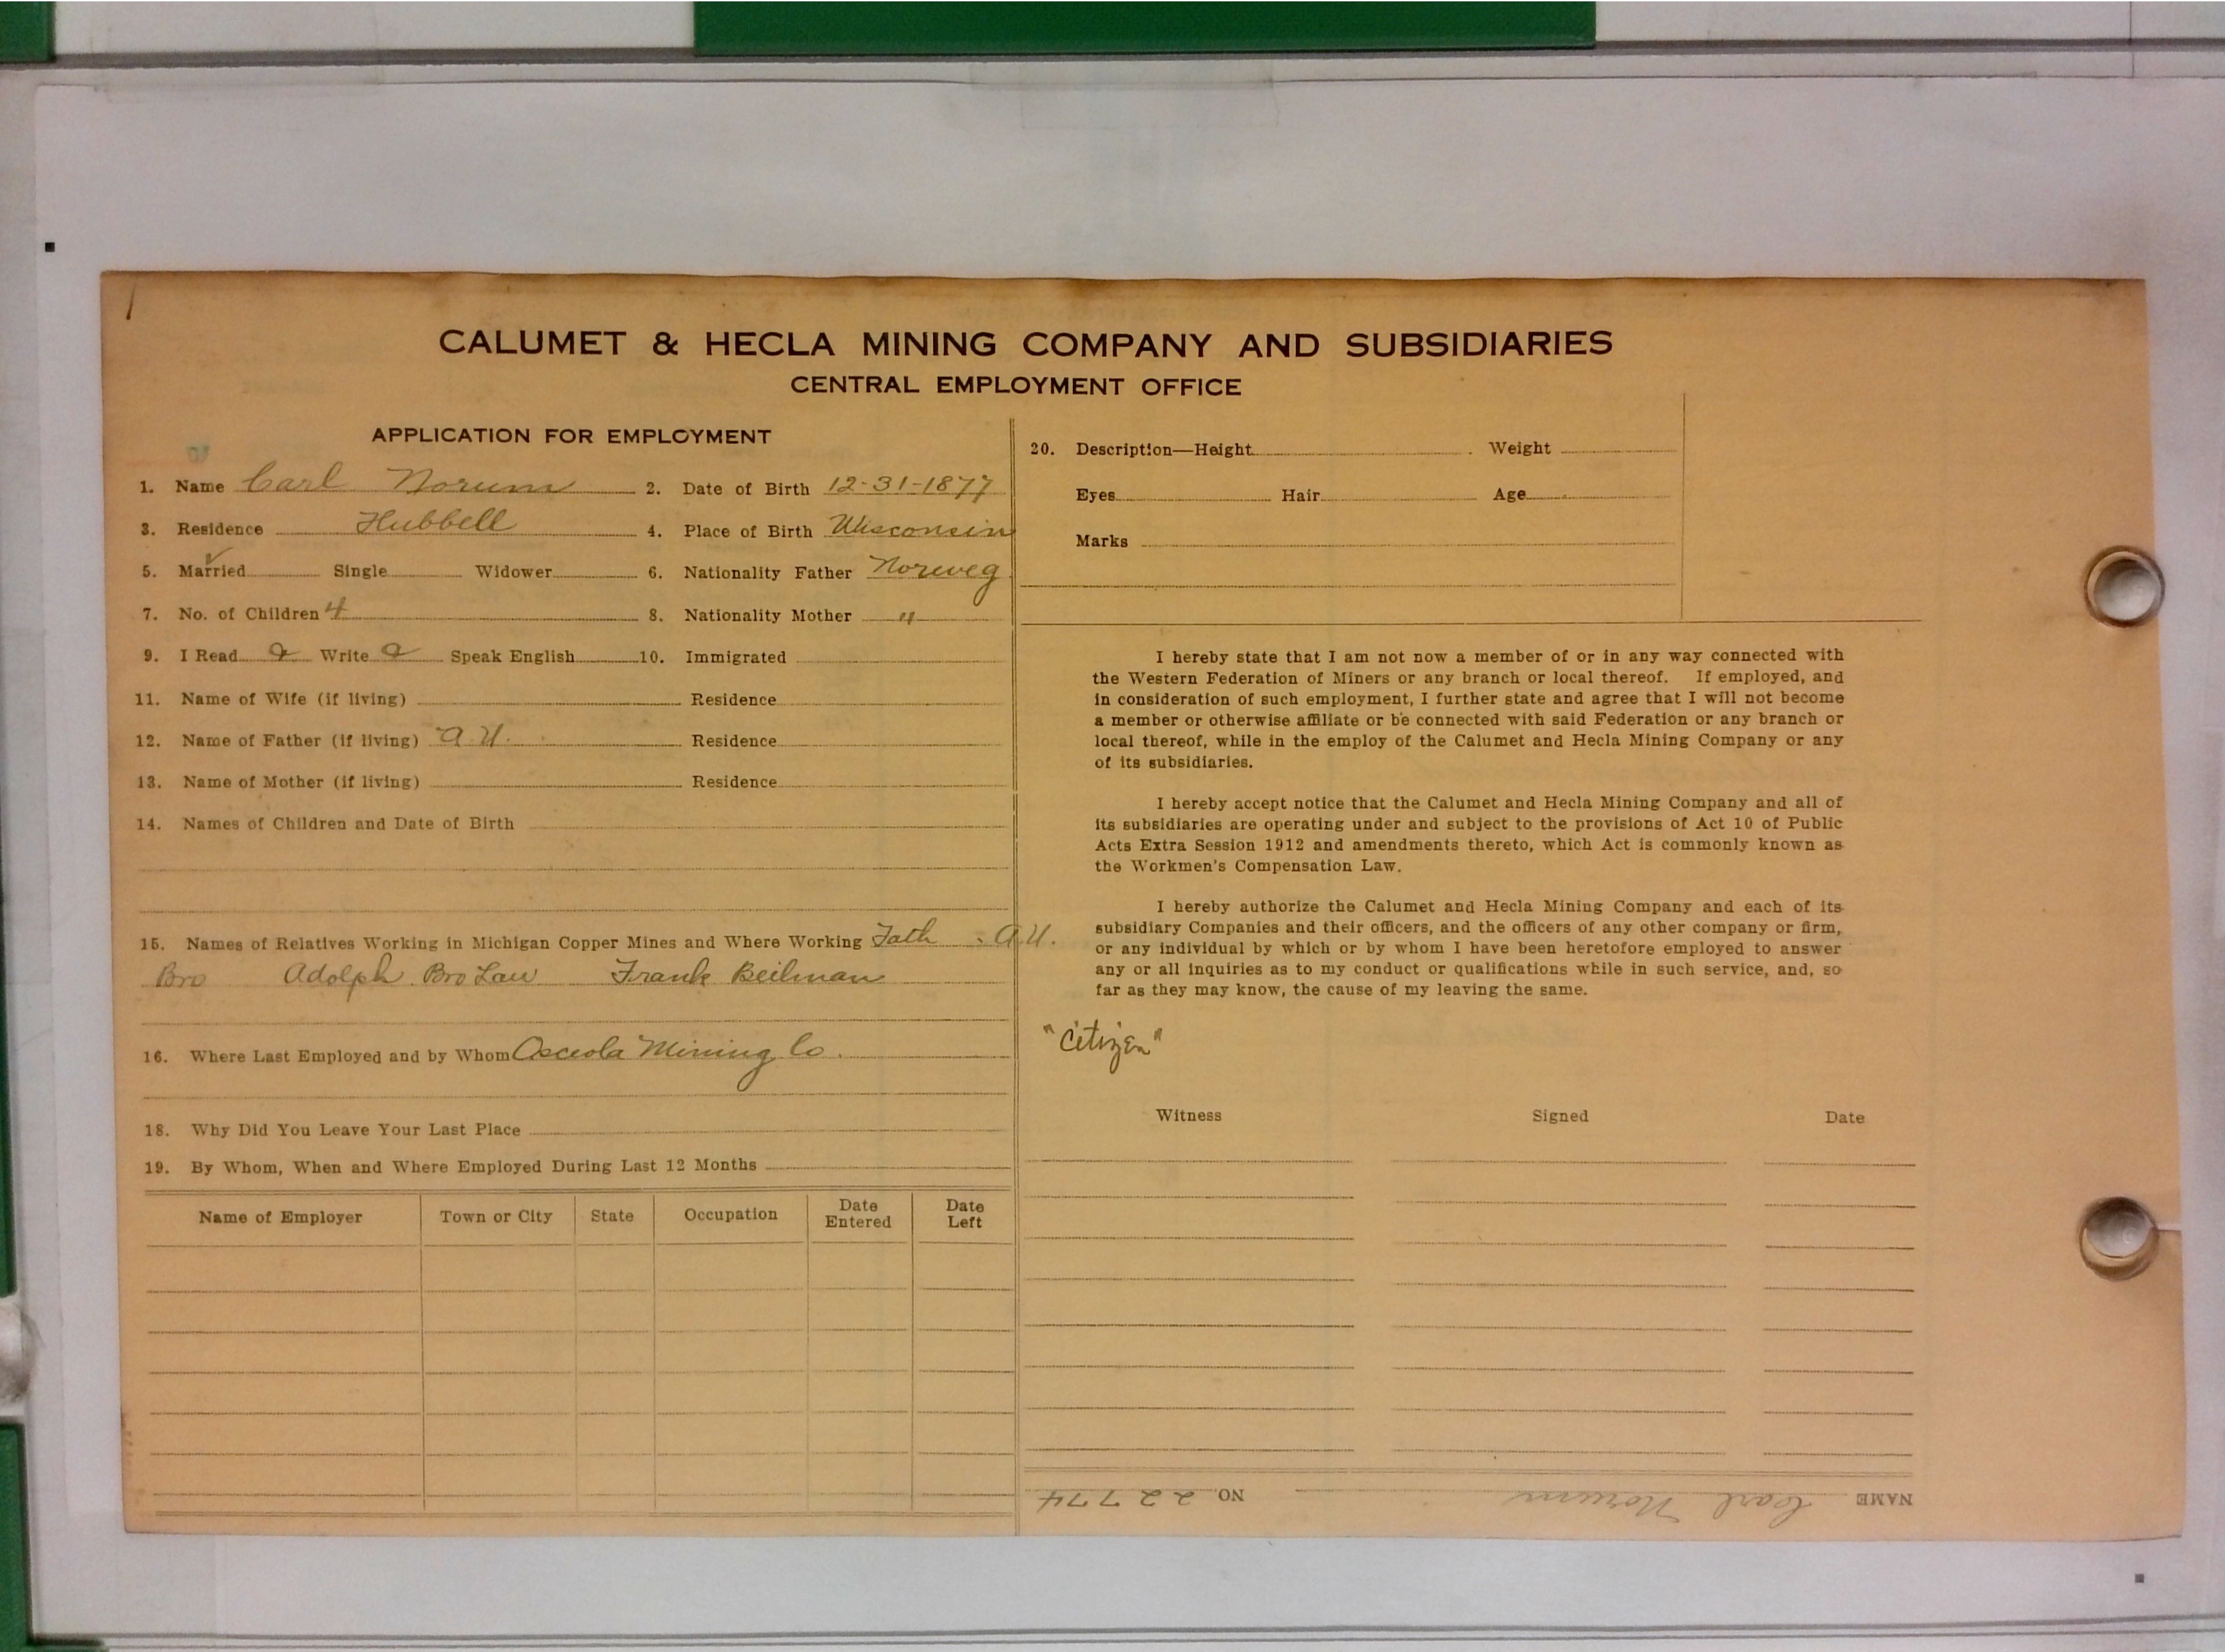 CALUMET & HECLA MINING COMPANY AND SUBSIDIARIES
CENTRAL EMPLOYMENT OFFICE
APPLICATION FOR EMPLOYMENT
1. Name Carl Norum 2. Date of Birth 12-31-1877
3. Residence Hubbell 4. Place of Birth Wisconsin
5. Married Single Widower 6. Nationality Father Norweg
7. No. of Children 4 8. Nationality Mother "
9. I Read Write Speak English 10. Immigrated
11. Name of Wife (if living) Residence
12. Name of Father (if living) Residence
13. Name of Mother (if living) Residence
14. Names of Children and Date of Birth
15. Names of Relatives Working in Michigan Copper Mines and Where Working Fath
Bro Adolph Bro Law Frank Beilman
16. Where Last Employed and by Whom Osceola Mining Co.
18. Why Did You Leave Your Last Place
19. By Whom, When and Where Employed During Last 12 Months
Name of Employer Town or City State Occupation Date Entered Date Left
20. Description—Height Weight
Eyes Hair Age
Marks
I hereby state that I am not now a member of or in any way connected with
the Western Federation of Miners or any branch or local thereof. If employed, and
in consideration of such employment, I further state and agree that I will not become
a member or otherwise affiliate or be connected with said Federation or any branch or
local thereof, while in the employ of the Calumet and Hecla Mining Company or any
of its subsidiaries.
I hereby accept notice that the Calumet and Hecla Mining Company and all of
its subsidiaries are operating under and subject to the provisions of Act 10 of Public
Acts Extra Session 1912 and amendments thereto, which Act is commonly known as
the Workmen's Compensation Law.
I hereby authorize the Calumet and Hecla Mining Company and each of its
subsidiary Companies and their officers, and the officers of any other company or firm,
or any individual by which or by whom I have been heretofore employed to answer
any or all inquiries as to my conduct or qualifications while in such service, and, so
far as they may know, the cause of my leaving the same.
"Citizen"
Witness Signed Date
NAME Carl Norum NO. 22774